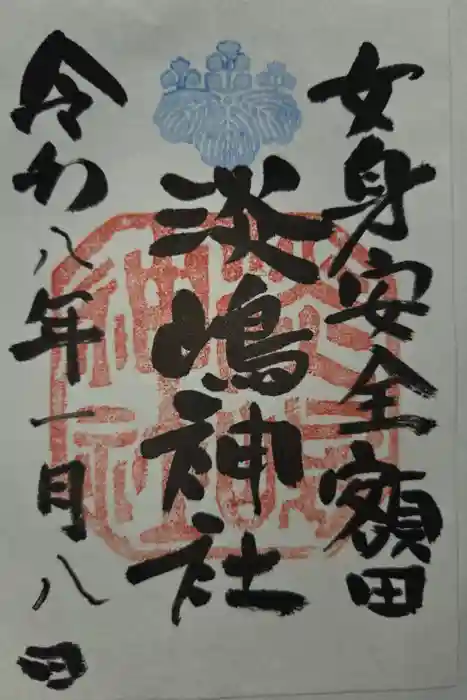 女身安全額田
淡嶋神社
令和八年一月八日